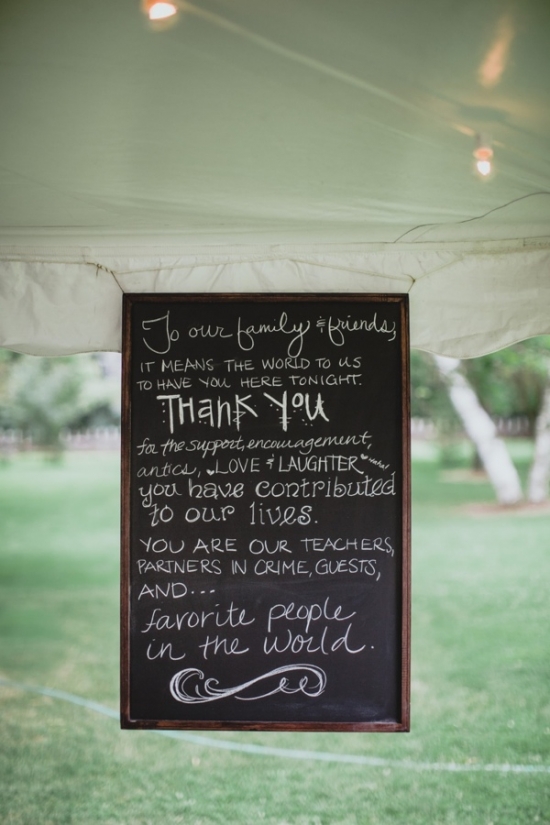 To our family & friends,
IT MEANS THE WORLD TO US
TO HAVE YOU HERE TONIGHT.
THANK YOU
for the support, encouragement,
antics, LOVE & LAUGHTER
you have contributed
to our lives.
YOU ARE OUR TEACHERS,
PARTNERS IN CRIME, GUESTS,
AND...
favorite people
in the world.